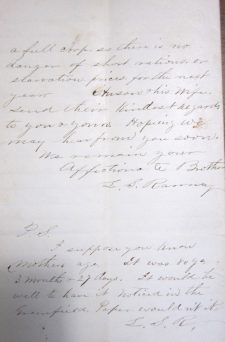 a full crop so there is no
danger of short rations or
starvation prices for the next
year Hason & his Wife
send their kindest regards
to you & yours Hoping we
may hear from you soon
We remain your
Affectionate Brother
L. S.
P. S.
I suppose you know
Mothers age It was 80 yr
3 months - 27 days. It would be
well to have it noticed in the
Greenfield Paper would it not
L. S. R.